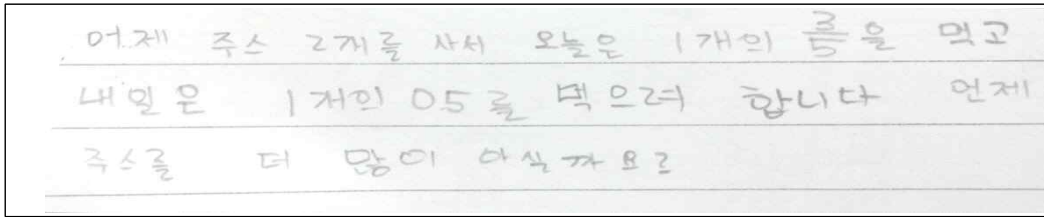 어제 주스 2개를 사서 오늘은 1개의 3/5을 먹고
내일은 1개의 05를 먹으려 합니다 언제
주스를 더 많이 마실까요?